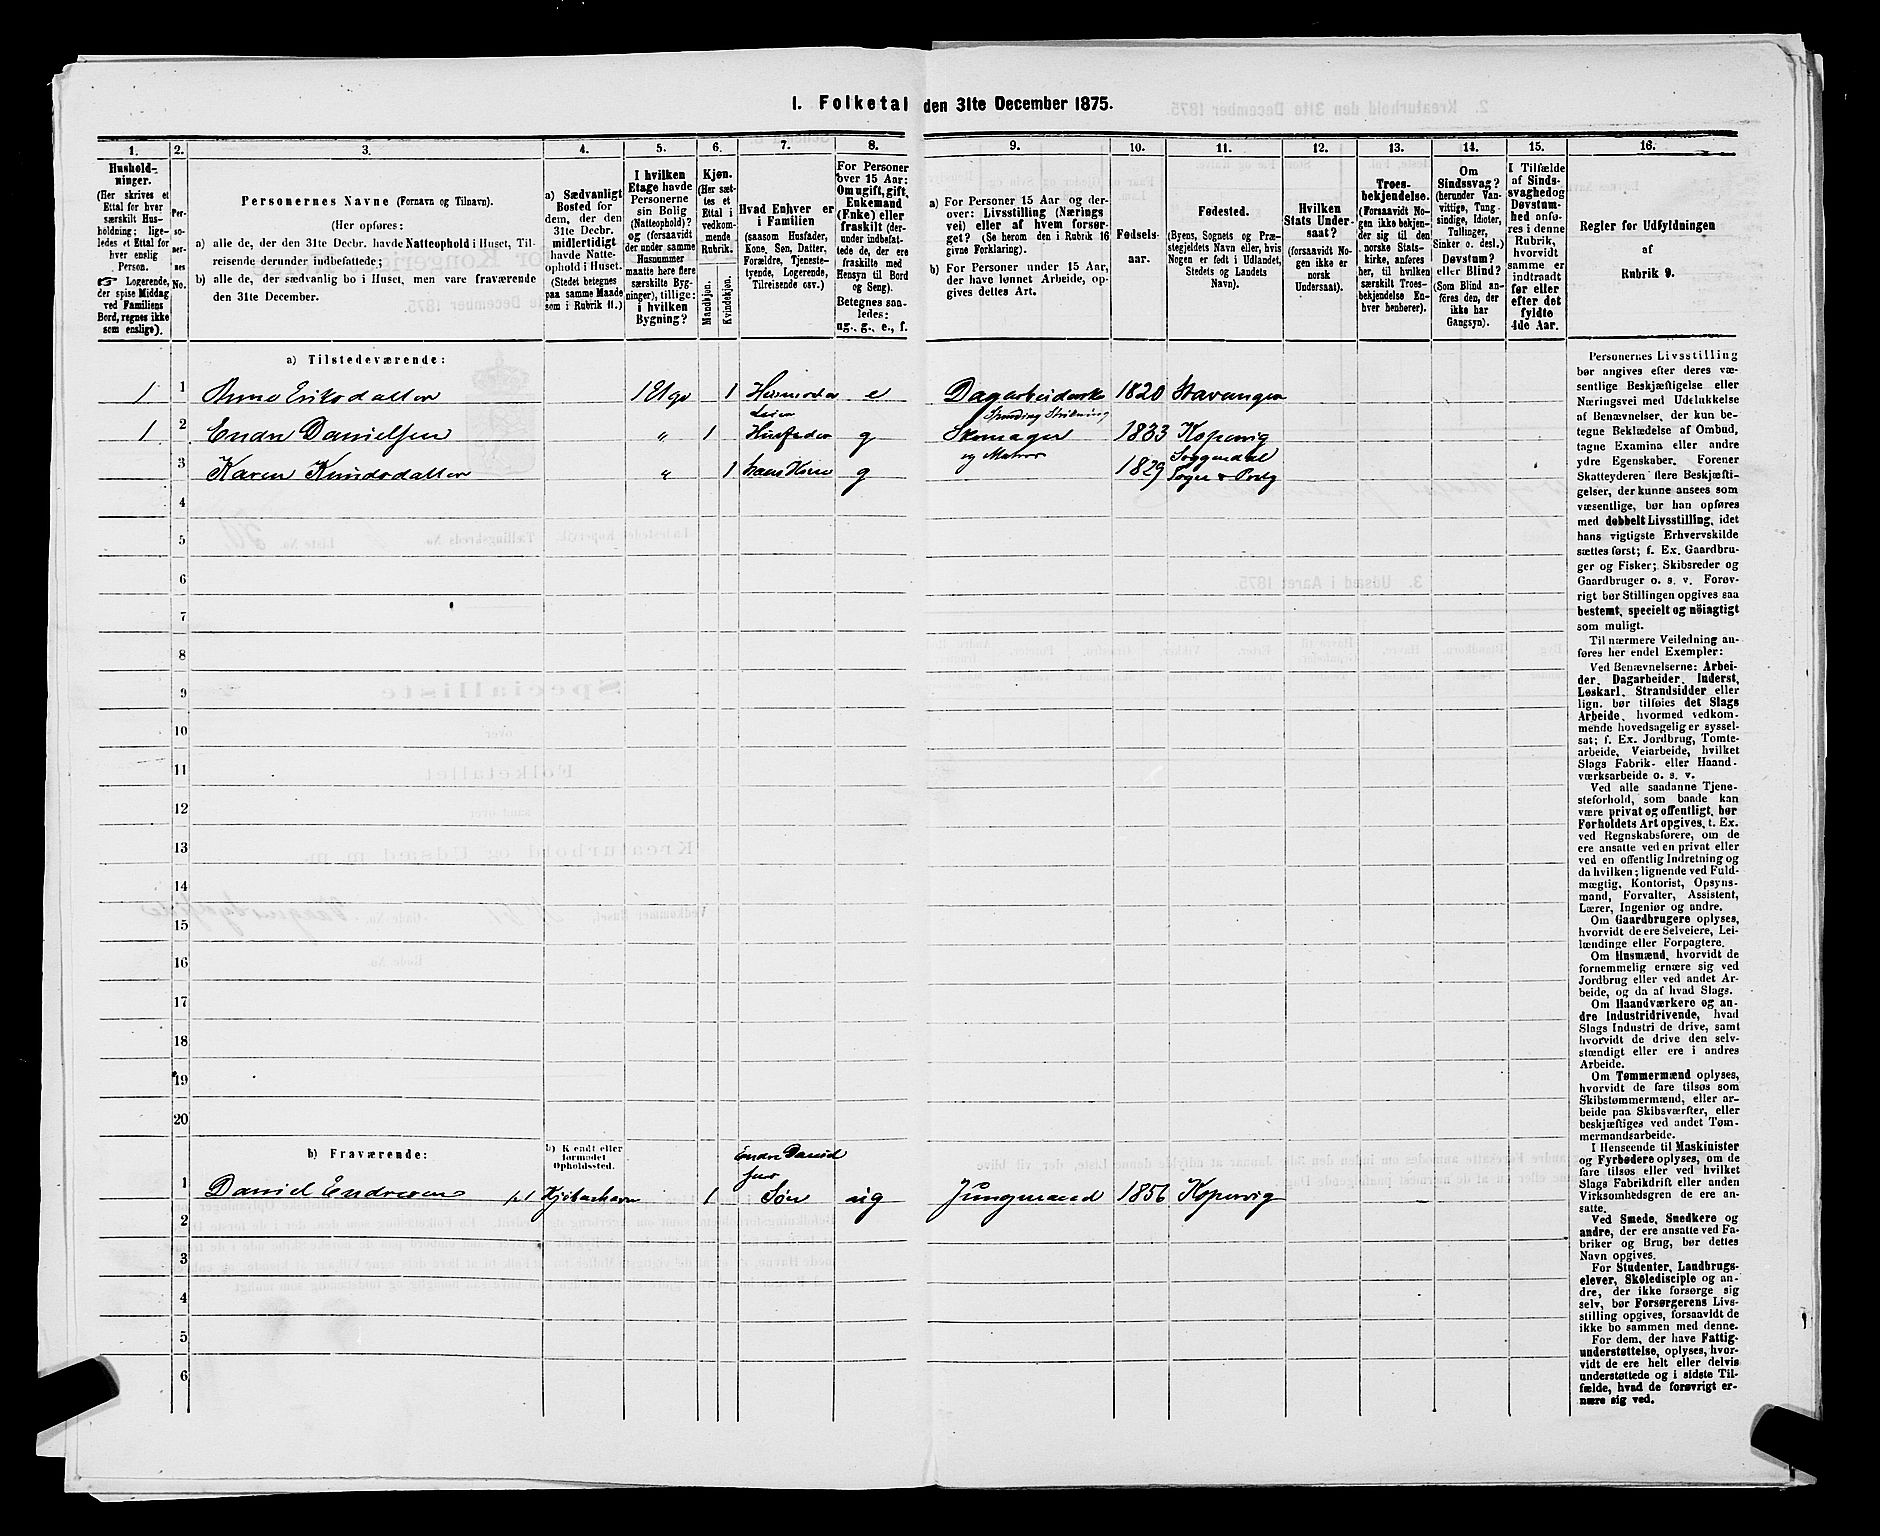 I. Folketal den 31te December 1875.
1. 2. 3. 4. 5. 6. 7. 8. 9. 10. 11. 12. 13. 14. 15. 16.
Hushold-
ninger.
(Her skrives et
Ettal for hver
særskilt Hus-
holdning; lige-
ledes et Ettal for
hver enslig
Person.
☞ Logerende,
der spise Middag
ved Familiens
Bord, regnes ikke
som enslige).
Per-
so-
ner-
nes
No.
Personernes Navne (Fornavn og Tilnavn).
(Her opføres:
a) alle de, der den 31te Decbr. havde Natteophold i Huset, Til-
reisende derunder indbefattede;
b) alle de, der sædvanlig bo i Huset, men vare fraværende
den 31te December.
a) Sædvanligt
Bosted for
dem, der den
31te Decbr.
midlertidigt
havde Natte-
ophold i Huset.
(Stedet betegnes
paa samme Maade
som i Rubrik 11.)
I hvilken
Etage havde
Personerne
sin Bolig
(Natteophold)?
og (forsaavidt
der under samme
Husnummer
maatte høre flere
særskilte Byg-
ninger), tillige:
i hvilken
Bygning?
Kjøn.
(Her sæt-
tes et
Ettal i
vedkom-
mende
Rubrik.
Mandkjøn.
Kvindekjøn.
Hvad Enhver er
i Familien
(saasom Husfader,
Kone, Søn, Datter,
Forældre, Tjeneste-
tyende, Logerende,
Tilreisende osv.)
For Personer
over 15 Aar:
Om ugift, gift,
Enkemand
(Enke) eller
fraskilt (der-
under indbefat-
tede de, der ere
fraskilte med
Hensyn til Bord
og Seng).
Betegnes saa-
ledes:
ug., g., e., f.
a) For Personer 15 Aar og der-
over: Livsstilling (Nærings
vei) eller af hvem forsør-
get? (Se herom den i Rubrik 16
givne Forklaring).
b) For Personer under 15 Aar,
der have lønnet Arbeide, op-
gives dettes Art.
Fødsels-
aar.
Fødested.
(Byens, Sognets og Præ-
stegjeldets Navn eller, hvis
Nogen er født i Udlandet,
Stedets og Landets
Navn).
Hvilken
Stats Under-
saat?
(forsaavidt No-
gen ikke er
norsk
Undersaat).
Troes-
bekjendelse.
(Forsaavidt No-
gen ikke bekjen-
der sig til den
norske Stats-
kirke, anføres
her, til hvilken
særskilt Troes-
bekjendelse En-
hver henhører).
Om
Sindssvag?
(herunder Van-
vittige, Tung-
sindige, Idioter,
Tullinger,
Sinker o. desl.)
Døvstum?
eller Blind?
(Som Blind an-
føres den, der
ikke har
Gangsyn).
I Tilfælde
af Sinds-
svaghed og
Døvstum-
hed anfø-
res i denne
Rubrik,
hvorvidt
samme er
indtraadt
før eller
efter det
fyldte
4de Aar.
Regler for Udfyldningen
af
Rubrik 9.
a) Tilstedeværende:
1 1 Anne Eriksdatter 1 Etge 1 Husmoder e Dagarbeiderske 1820 Stavanger
1 2 Endre Danielsen " 1 Husfader g Skomager 1833 Kopervig
og Matros Soggendal
3 Karen Knudsdatter " 1 hans Kone g 1829 Sogn
4
5
6
7
8
9
10
11
12
13
14
15
16
17
18
19
20
b) Fraværende:
b) Kjendt eller
formodet
Opholdssted.
Endre Daniel
sens
1 Daniel Endresen Kjøbenhavn 1 Søn ug Jungmand 1856 Kopervig
2
3
4
5
6
Personernes Livsstilling
bør angives efter deres væ-
sentlige Beskjæftigelse eller
Næringsvei med Udelukkelse
af Benævnelser, der kun be-
tegne Beklædelse af Ombud,
tagne Examina eller andre
ydre Egenskaber. Forener
Skatteyderen flere Beskjæfti-
gelser, der kunne ansees som
væsentlige, bør han opføres
med dobbelt Livsstilling, idet
hans vigtigste Erhvervskilde
sættes først; f. Ex. Gaardbru-
ger og Fisker; Skibsreder og
Gaardbruger o. s. v. Forøv-
rigt bør Stillingen opgives saa
bestemt, specielt og nöiagtigt
som muligt.
Til nærmere Veiledning an-
føres her endel Exempler:
Ved Benævnelserne: Arbei-
der, Dagarbeider, Inderst,
Løskarl, Strandsidder eller
lign. bør tilføies det Slags
Arbeide, hvormed vedkom-
mende hovedsagelig er syssel-
sat; f. Ex. Jordbrug, Tomte-
arbeide, Veiarbeide, hvilket
Slags Fabrik- eller Haand-
værksarbeide o. s. v.
Ved alle saadanne Tjene-
steforhold, som baade kan
være privat og offentligt, bør
Forholdets Art opgives, t. Ex.
ved Regnskabsførere, om de
ere ansatte ved en privat eller
ved en offentlig Indretning og
da hvilken; lignende ved Fuld-
mægtig, Kontorist, Opsyns-
mand, Forvalter, Assistent,
Lærer, Ingeniør og andre.
Om Gaardbrugere oplyses,
hvorvidt de ere Selveiere, Lei-
lændinge eller Forpagtere.
Om Husmænd, hvorvidt de
fornemmelig ernære sig ved
Jordbrug eller ved andet Ar-
beide, og da af hvad Slags.
Om Haandværkere og an-
dre Industridrivende, hvad
Slags Industri de drive, samt
hvorvidt de drive den selv-
stændigt eller ere i andres
Arbeide.
Om Tømmermænd oplyses,
hvorvidt de fare tilsøs som
Skibstømmermænd, eller ar-
beide paa Skibsværfter, eller
beskjæftiges ved andet Tøm-
mermandsarbeide.
I Henseende til Maskinister
og Fyrbødere oplyses, om de
fare tilsøs eller ved hvilket
Slags Fabrikdrift eller anden
Virksomhedsgren de ere an-
satte.
Ved Smede, Snedkere og
andre, der ere ansatte ved Fa-
briker og Brug, bør dettes
Navn opgives.
For Studenter, Landbrugs-
elever, Skoledisciple og an-
dre, der ikke forsørge sig
selv, bør Forsørgerens Livs-
stilling opgives, forsaavidt de
ikke bo sammen med denne.
For dem, der have Fattig-
understøttelse, oplyses, hvor-
vidt de ere helt eller delvis
understøttede og i sidste Til-
fælde, hvad de forøvrigt er-
nære sig ved.